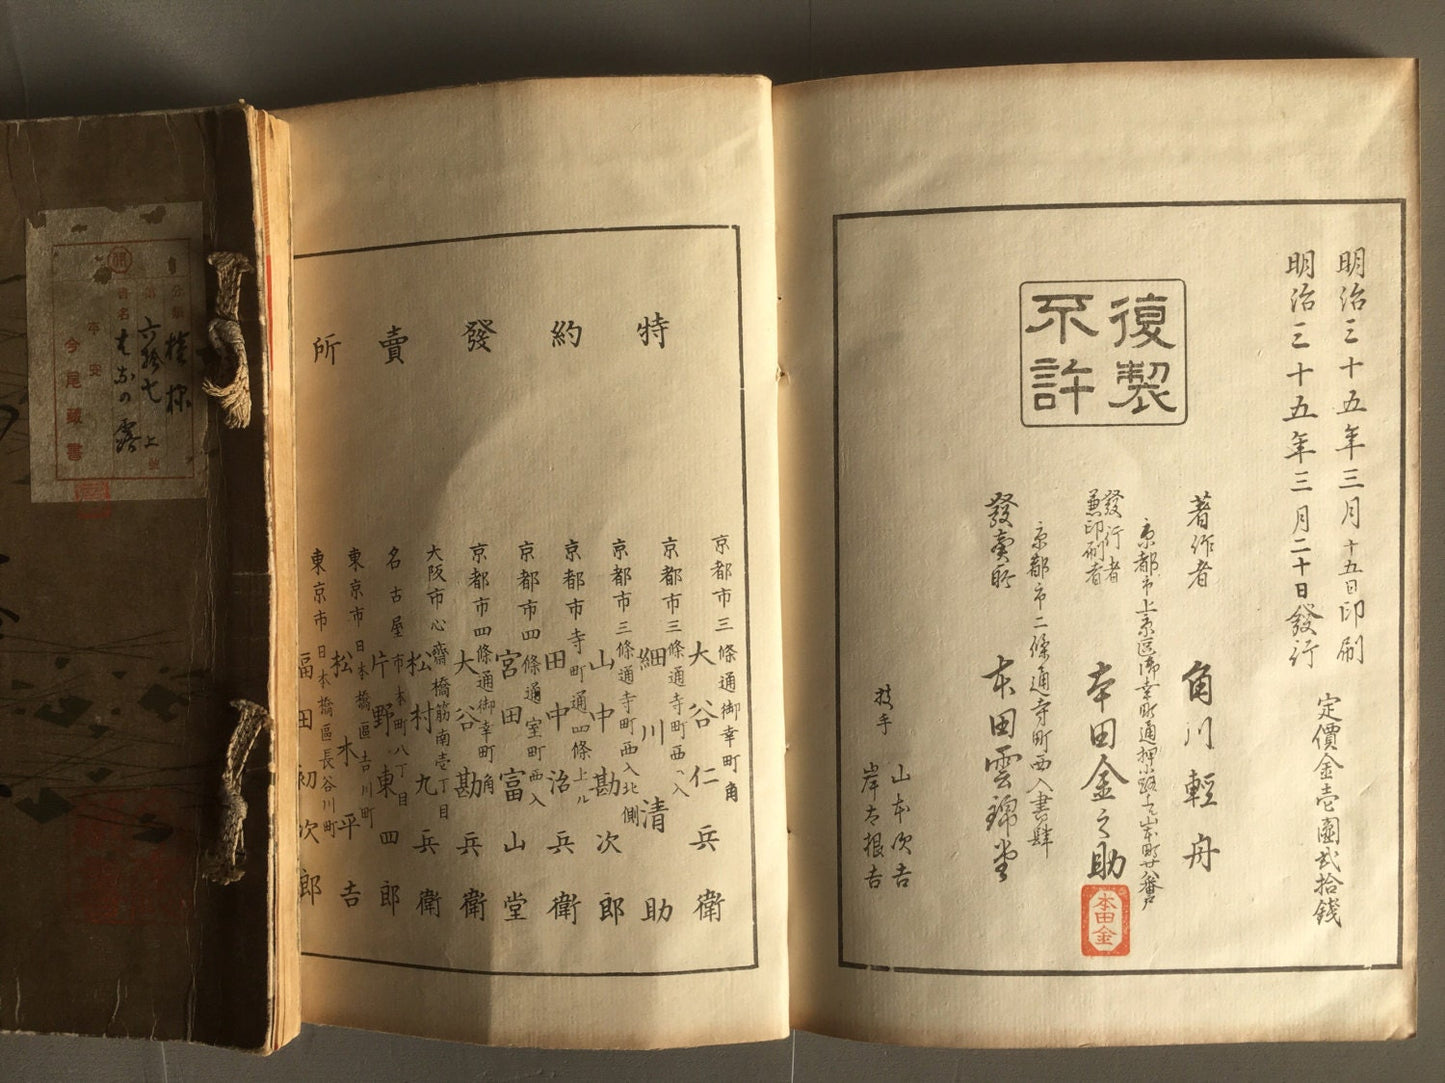 明治三十五年三月十五日印刷
明治三十五年三月二十日發行
定價金壱圓弐拾錢
復製
不許
著作者 角川輕舟
京都市上京區御幸町通押小路上ル山本町廿八番戸
發行者
兼印刷者
本田金之助
本田金
京都市二條通寺町西入書肆
發賣所 本田雲錦堂
技手
山本次吉
岸本根吉
特約發賣所
京都市三條通御幸町角
大谷仁兵衛
京都市三條通寺町西入
細川清助
京都市三條通寺町西入北側
山中勘次郎
京都市寺町通四條上ル
田中治兵衛
京都市四條通室町西入
宮田富山堂
京都市四條通御幸町角
大谷勘兵衛
大阪市心齋橋筋南壱丁目
松村九兵衛
名古屋市本町八丁目
片野東四郎
東京市日本橋區吉川町
松木平吉
東京市日本橋區長谷川町
福田初次郎
分類
第六拾七上號
書名
平安
今尾藏書